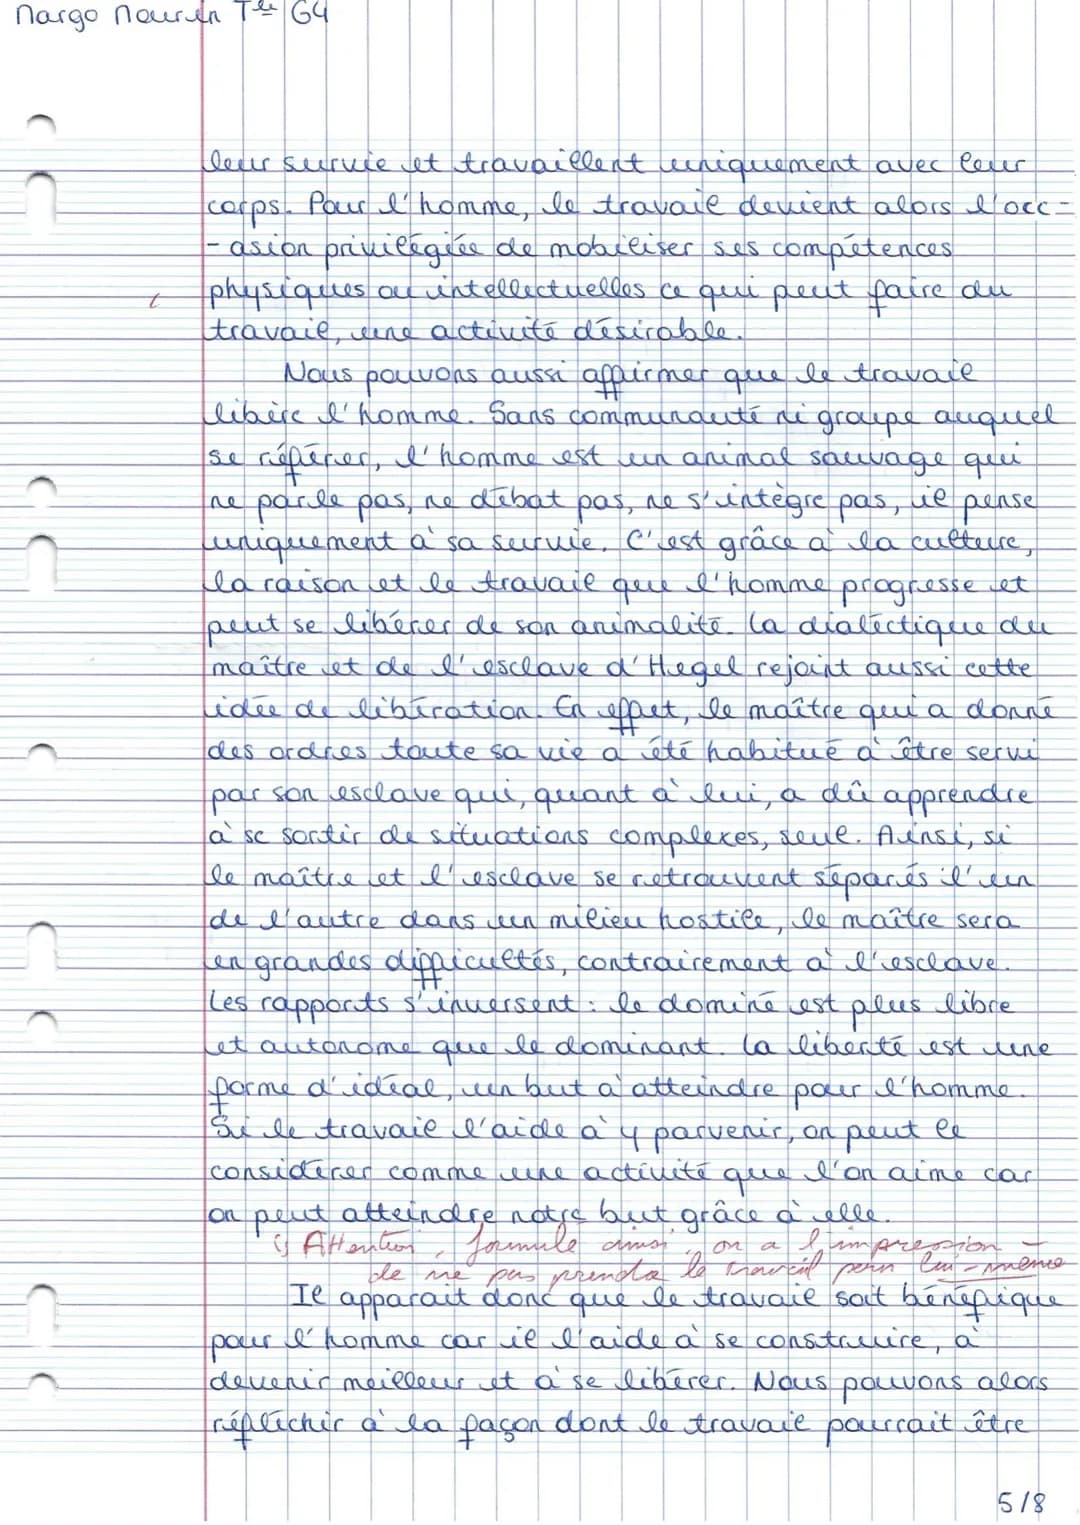 Margo Mourin Tle G4
leur survie et travaillent uniquement avec leur
corps. Pour l'homme, le travail devient alors l'occ-
-asion privilégiée de mobiliser ses compétences
physiques ou intellectuelles ce qui peut faire du
travail, une activité désirable.
Nous pouvons aussi affirmer que le travail
libère l'homme. Sans communauté ni groupe auquel
se référer, l'homme est un animal sauvage qui
ne parle pas, ne débat pas, ne s'intègre pas, il pense
uniquement à sa survie. C'est grâce à la culture,
la raison et le travail que l'homme progresse et
peut se libérer de son animalité. La dialectique du
maître et de l'esclave d'Hegel rejoint aussi cette
idée de libération. En effet, le maître qui a donné
des ordres toute sa vie a été habitué à être servi
par son esclave qui, quant à lui, a dû apprendre
à se sortir de situations complexes, seul. Ainsi, si
le maître et l'esclave se retrouvent séparés l'un
de l'autre dans un milieu hostile, le maître sera
en grandes difficultés, contrairement à l'esclave.
Les rapports s'inversent : le dominé est plus libre
et autonome que le dominant. La liberté est une
forme d'idéal, un but à atteindre pour l'homme.
Si le travail l'aide à y parvenir, on peut le
considérer comme une activité que l'on aime car
on peut atteindre notre but grâce à elle.
Attention, formulé ainsi, on a l'impression
de ne pas prendre le travail pour lui-même
Il apparait donc que le travail soit bénéfique
pour l'homme car il l'aide à se construire, à
devenir meilleur et à se libérer. Nous pouvons alors
réfléchir à la façon dont le travail pourrait être
5/8